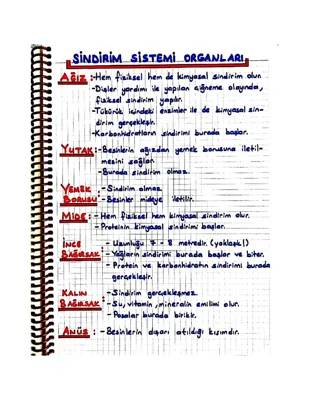 SİNDİRİM SİSTEMİ ORGANLARI
AĞIZ :-Hem fiziksel hem de kimyasal sindirim olur.
-Dişler yardımı ile yapılan çiğneme olayında,
fiziksel sindirim yapılır.
-Tükürük içindeki enzimler ile de kimyasal sin-
dirim gerçekleşir.
-Karbonhidratların sindirimi burada başlar.
YUTAK :-Besinlerin ağızdan yemek borusuna iletil-
mesini sağlar.
-Burada sindirim olmaz.
YEMEK BORUSU :-Sindirim olmaz.
-Besinler mideye iletilir.
MİDE :-Hem fiziksel hem kimyasal sindirim olur.
-Proteinin kimyasal sindirimi başlar.
İNCE BAĞIRSAK :-Uzunluğu 7-8 metredir. (yaklaşık!)
-Yağların sindirimi burada başlar ve biter.
-Protein ve karbonhidratın sindirimi burada
gerçekleşir.
KALIN BAĞIRSAK :-Sindirim gerçekleşmez.
-Su, vitamin, mineralin emilimi olur.
-Posalar burada birikir.
ANÜS :-Besinlerin dışarı atıldığı kısımdır.